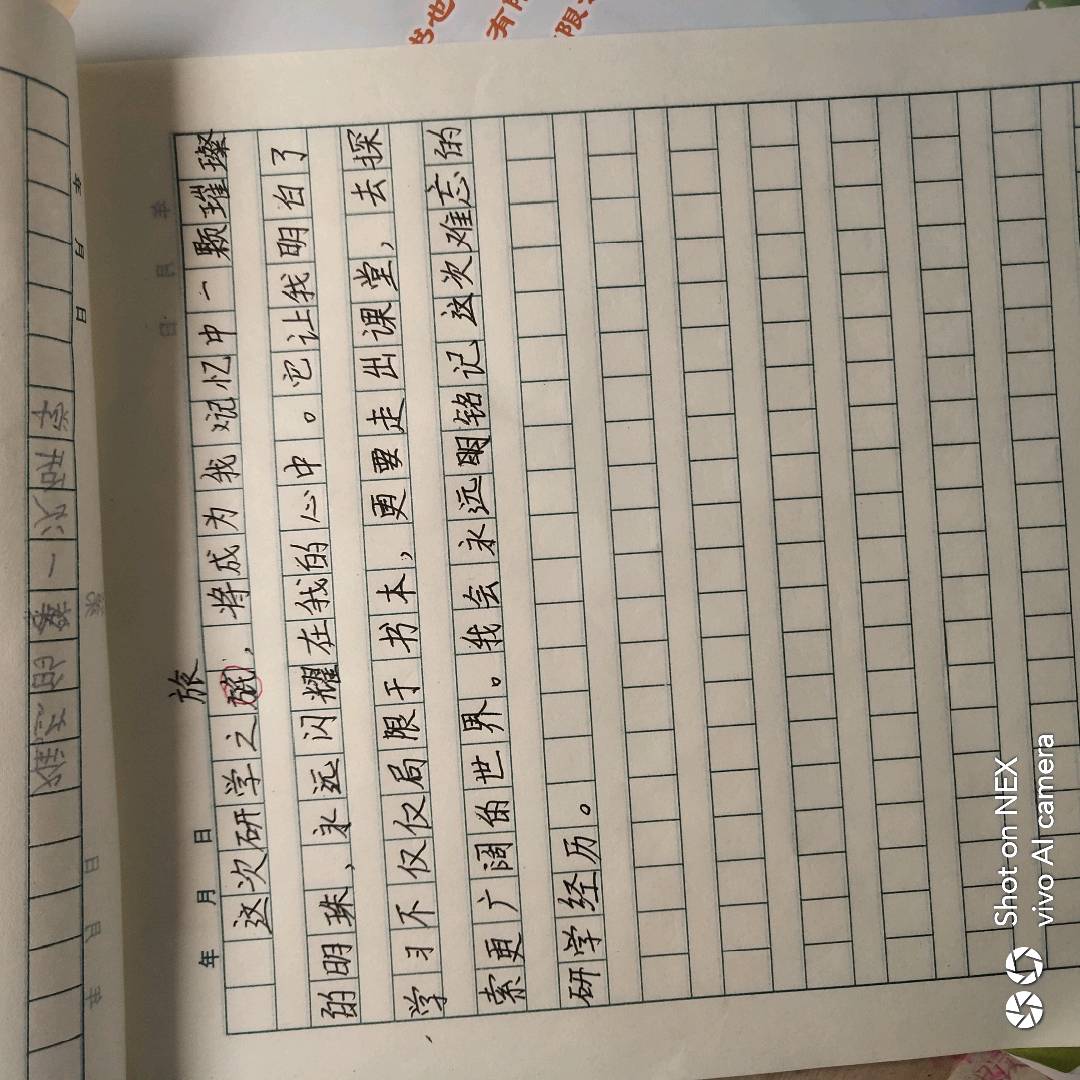 书也
有所
限
难忘的第一次研学
年 月 日
年 月 日
旅
这次研学之旅，将成为我记忆中一颗璀璨
的明珠、永远闪耀在我的心中。它让我明白了
学习不仅仅局限于书本，更要走出课堂，去探
索更广阔的世界。我会永远明铭记这次难忘的
研学经历。
Shot on NEX
vivo AI camera